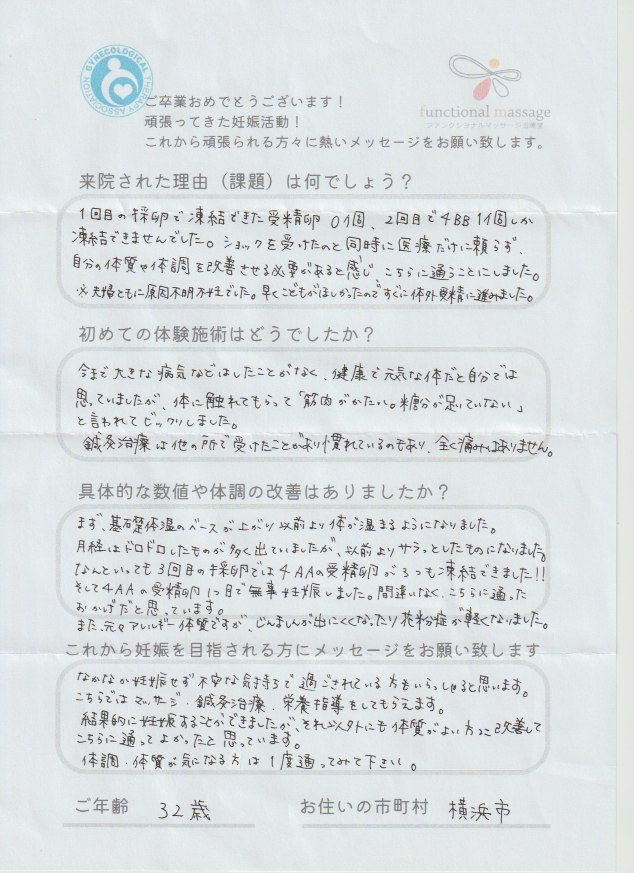 GYNECOLOGICAL THERAPY ASSOCIATION
functional massage
ファンクショナルマッサージ治療室
ご卒業おめでとうございます！
頑張ってきた妊娠活動！
これから頑張られる方々に熱いメッセージをお願い致します。
来院された理由（課題）は何でしょう？
1回目の採卵で凍結できた受精卵 0個、2回目で4BB 1個しか
凍結できませんでした。ショックを受けたのと同時に医療だけに頼らず、
自分の体質や体調を改善させる必要があると感じ こちらに通うことにしました。
※夫婦ともに原因不明不妊でした。早くこどもがほしかったので すぐに体外受精に進みました。
初めての体験施術はどうでしたか？
今まで大きな病気などはしたことがなく、健康で元気な体だと自分では
思っていましたが、体に触れてもらって「筋肉がかたい。糖分が足りていない」
と言われてビックリしました。
鍼灸治療は他の所で受けたことがあり慣れているのもあり、全く痛みはありません。
具体的な数値や体調の改善はありましたか？
まず、基礎体温のベースが上がり以前より体が温まるようになりました。
月経はドロドロしたものが多く出ていましたが、以前よりサラッとしたものになりました。
なんといっても3回目の採卵では4AAの受精卵が3つも凍結できました!!
そして4AAの受精卵1つ目で無事妊娠しました。間違いなく、こちらに通った
おかげだと思っています。
また、元々アレルギー体質ですが、じんましんが出にくくなったり花粉症が軽くなりました。
これから妊娠を目指される方にメッセージをお願い致します
なかなか妊娠せず不安な気持ちで過ごされている方もいらっしゃると思います。
こちらではマッサージ・鍼灸治療・栄養指導をしてもらえます。
結果的に妊娠することができましたが、それ以外にも体質がよい方に改善して
こちらに通ってよかったと思っています。
体調・体質が気になる方は1度通ってみて下さい。
ご年齢 32歳 お住いの市町村 横浜市